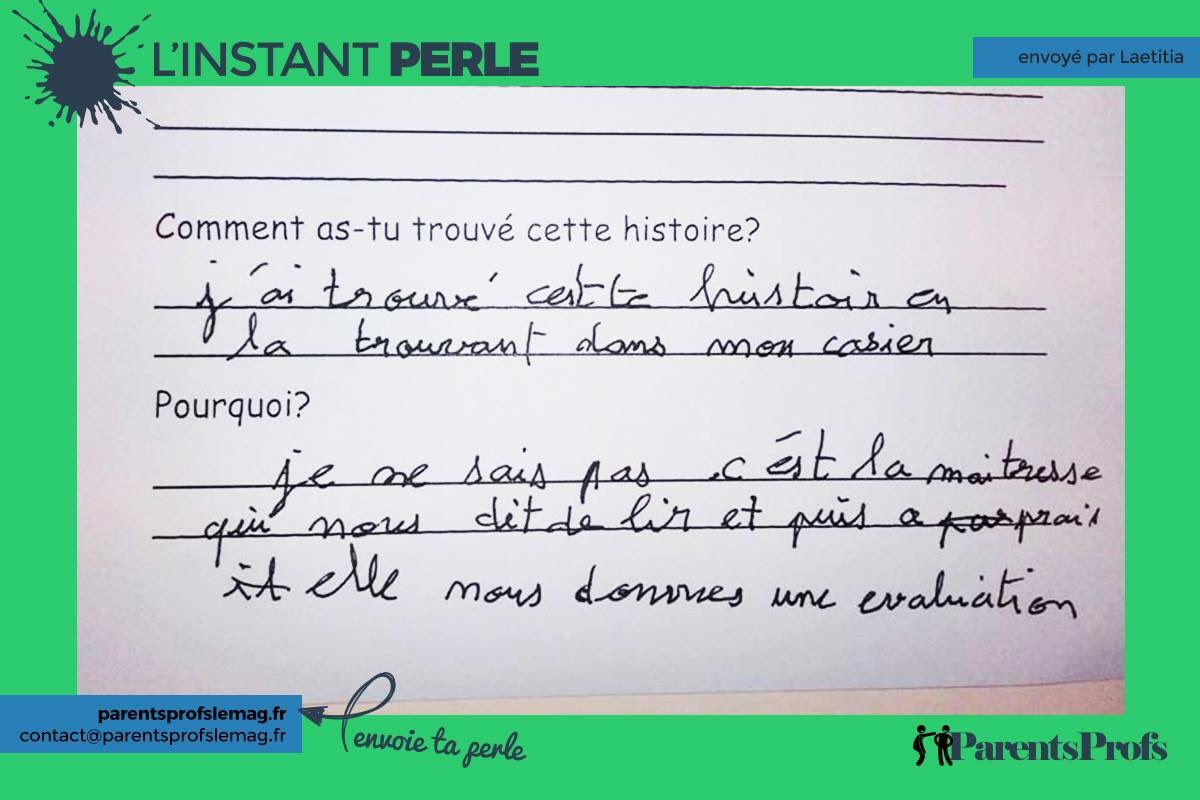 L'INSTANT PERLE
envoyé par Laetitia
Comment as-tu trouvé cette histoire?
j'ai trouvé cest-te histoir en
la trouvant dans mon casier
Pourquoi?
je ne sais pas .c ést la maitresse
qui nous dit de lir et puis a par prais
it elle nous donnes une evaluation
parentsprofslemag.fr
contact@parentsprofslemag.fr
envoie ta perle
ParentsProfs